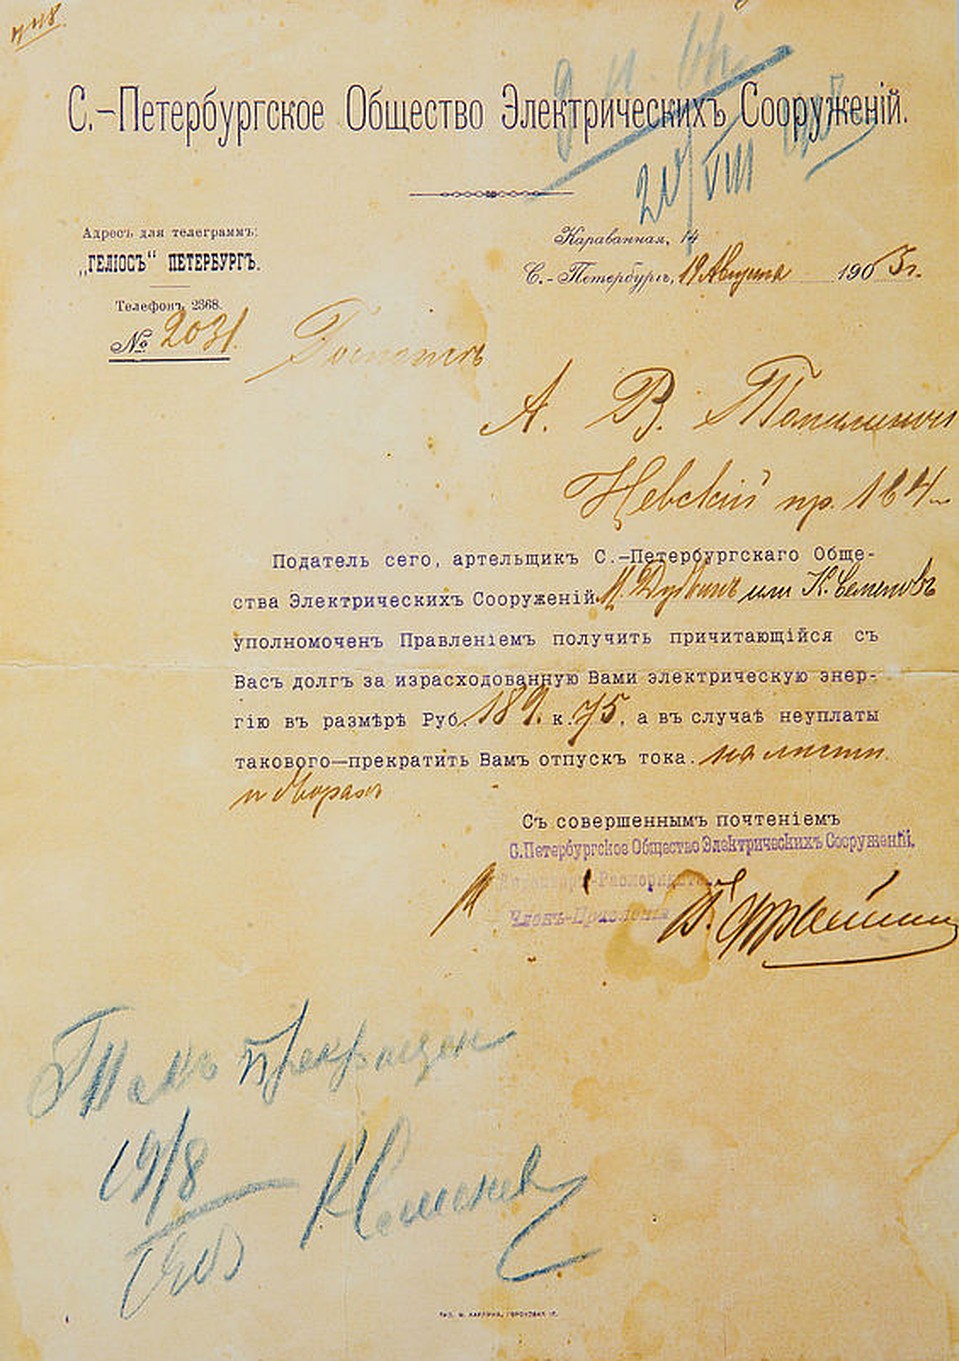 С.-Петербургское Общество Электрическихъ Сооруженій.
Адресъ для телеграммъ:
„ГЕЛІОСЪ“ ПЕТЕРБУРГЪ.
Телефонъ 2368.
№ 2031.
Караванная, 14
С.-Петербургъ, 19 Августа 1905 г.
20/VIII
А. В.
Невскій пр. 184
Податель сего, артельщикъ С.-Петербургскаго Обще-
ства Электрическихъ Сооруженій М. или К. Семеновъ
уполномоченъ Правленіемъ получить причитающійся съ
Васъ долгъ за израсходованную Вами электрическую энер-
гію въ размѣрѣ Руб. 189. к. 75, а въ случаѣ неуплаты
такового—прекратить Вамъ отпускъ тока.
Съ совершеннымъ почтеніемъ
С.Петербургское Общество Электрическихъ Сооруженій.
Членъ-Правленія
Токъ прекращен
19/8
К Семенов